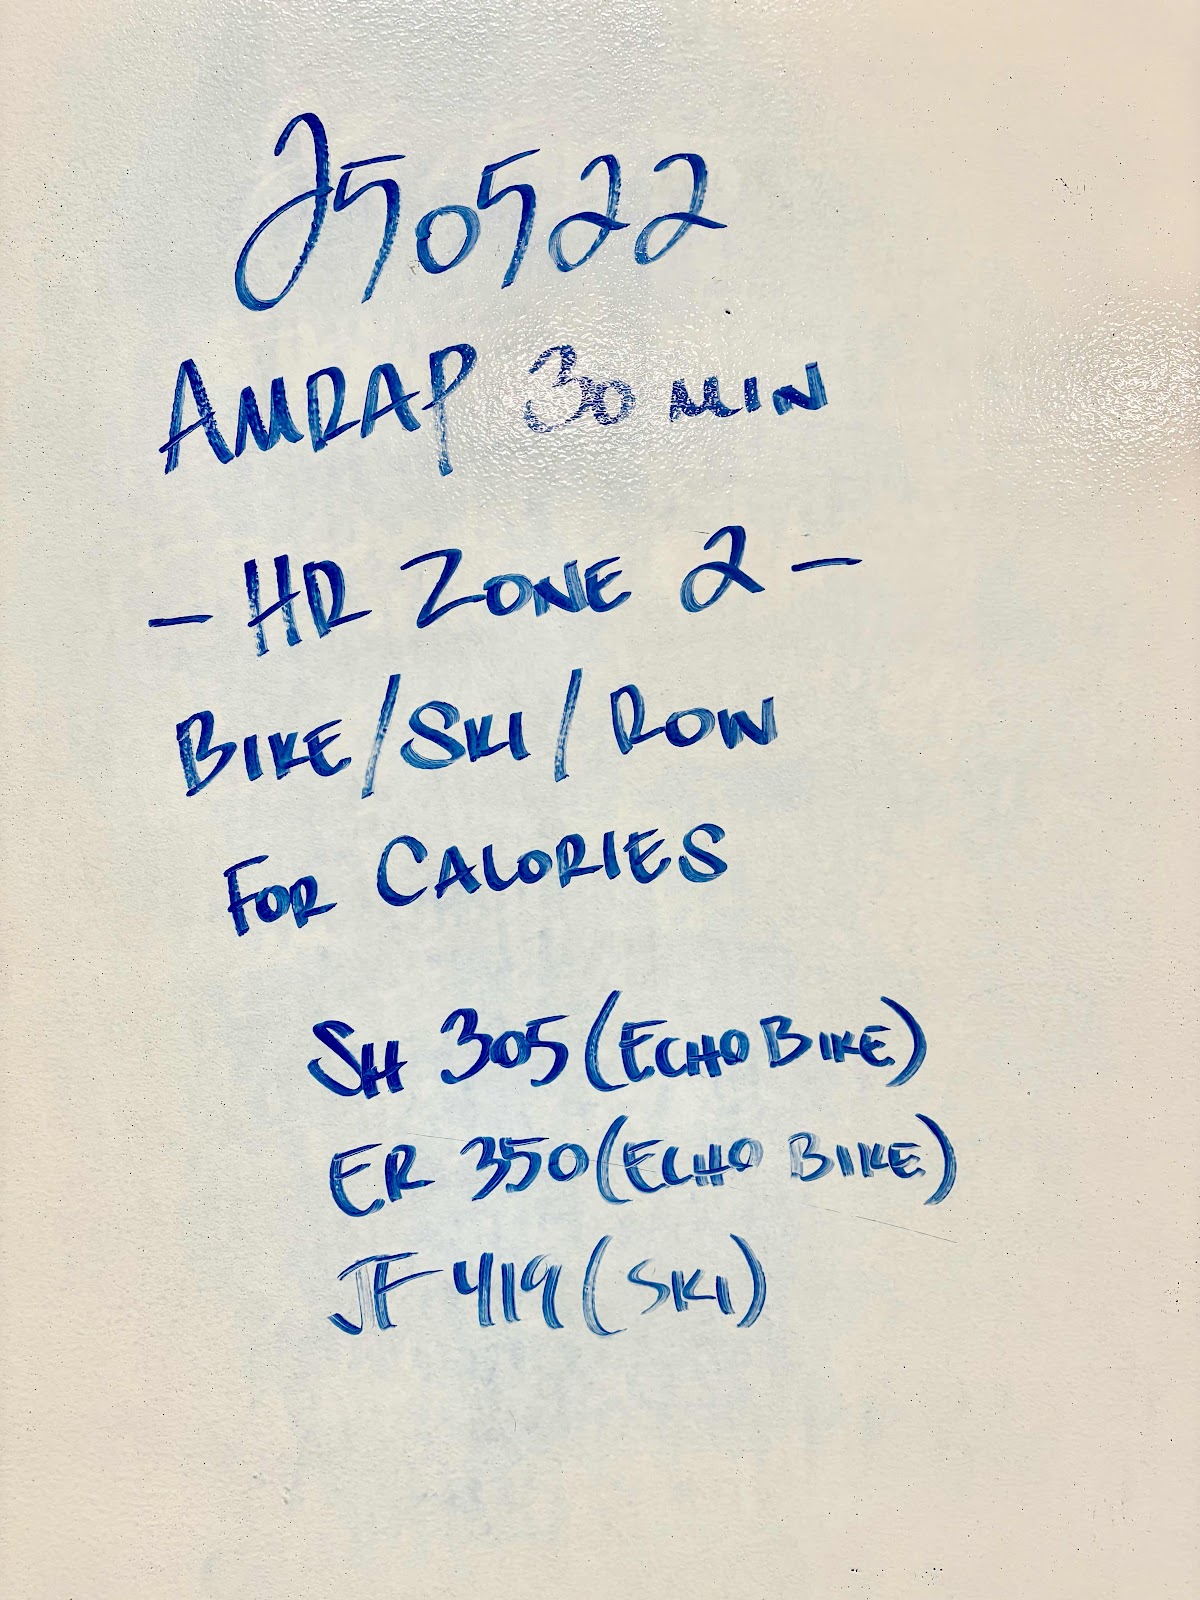 250522
AMRAP 30 MIN
- HR ZONE 2 -
BIKE/SKI/ROW
FOR CALORIES
SH 305 (ECHO BIKE)
ER 350 (ECHO BIKE)
JF 419 (SKI)